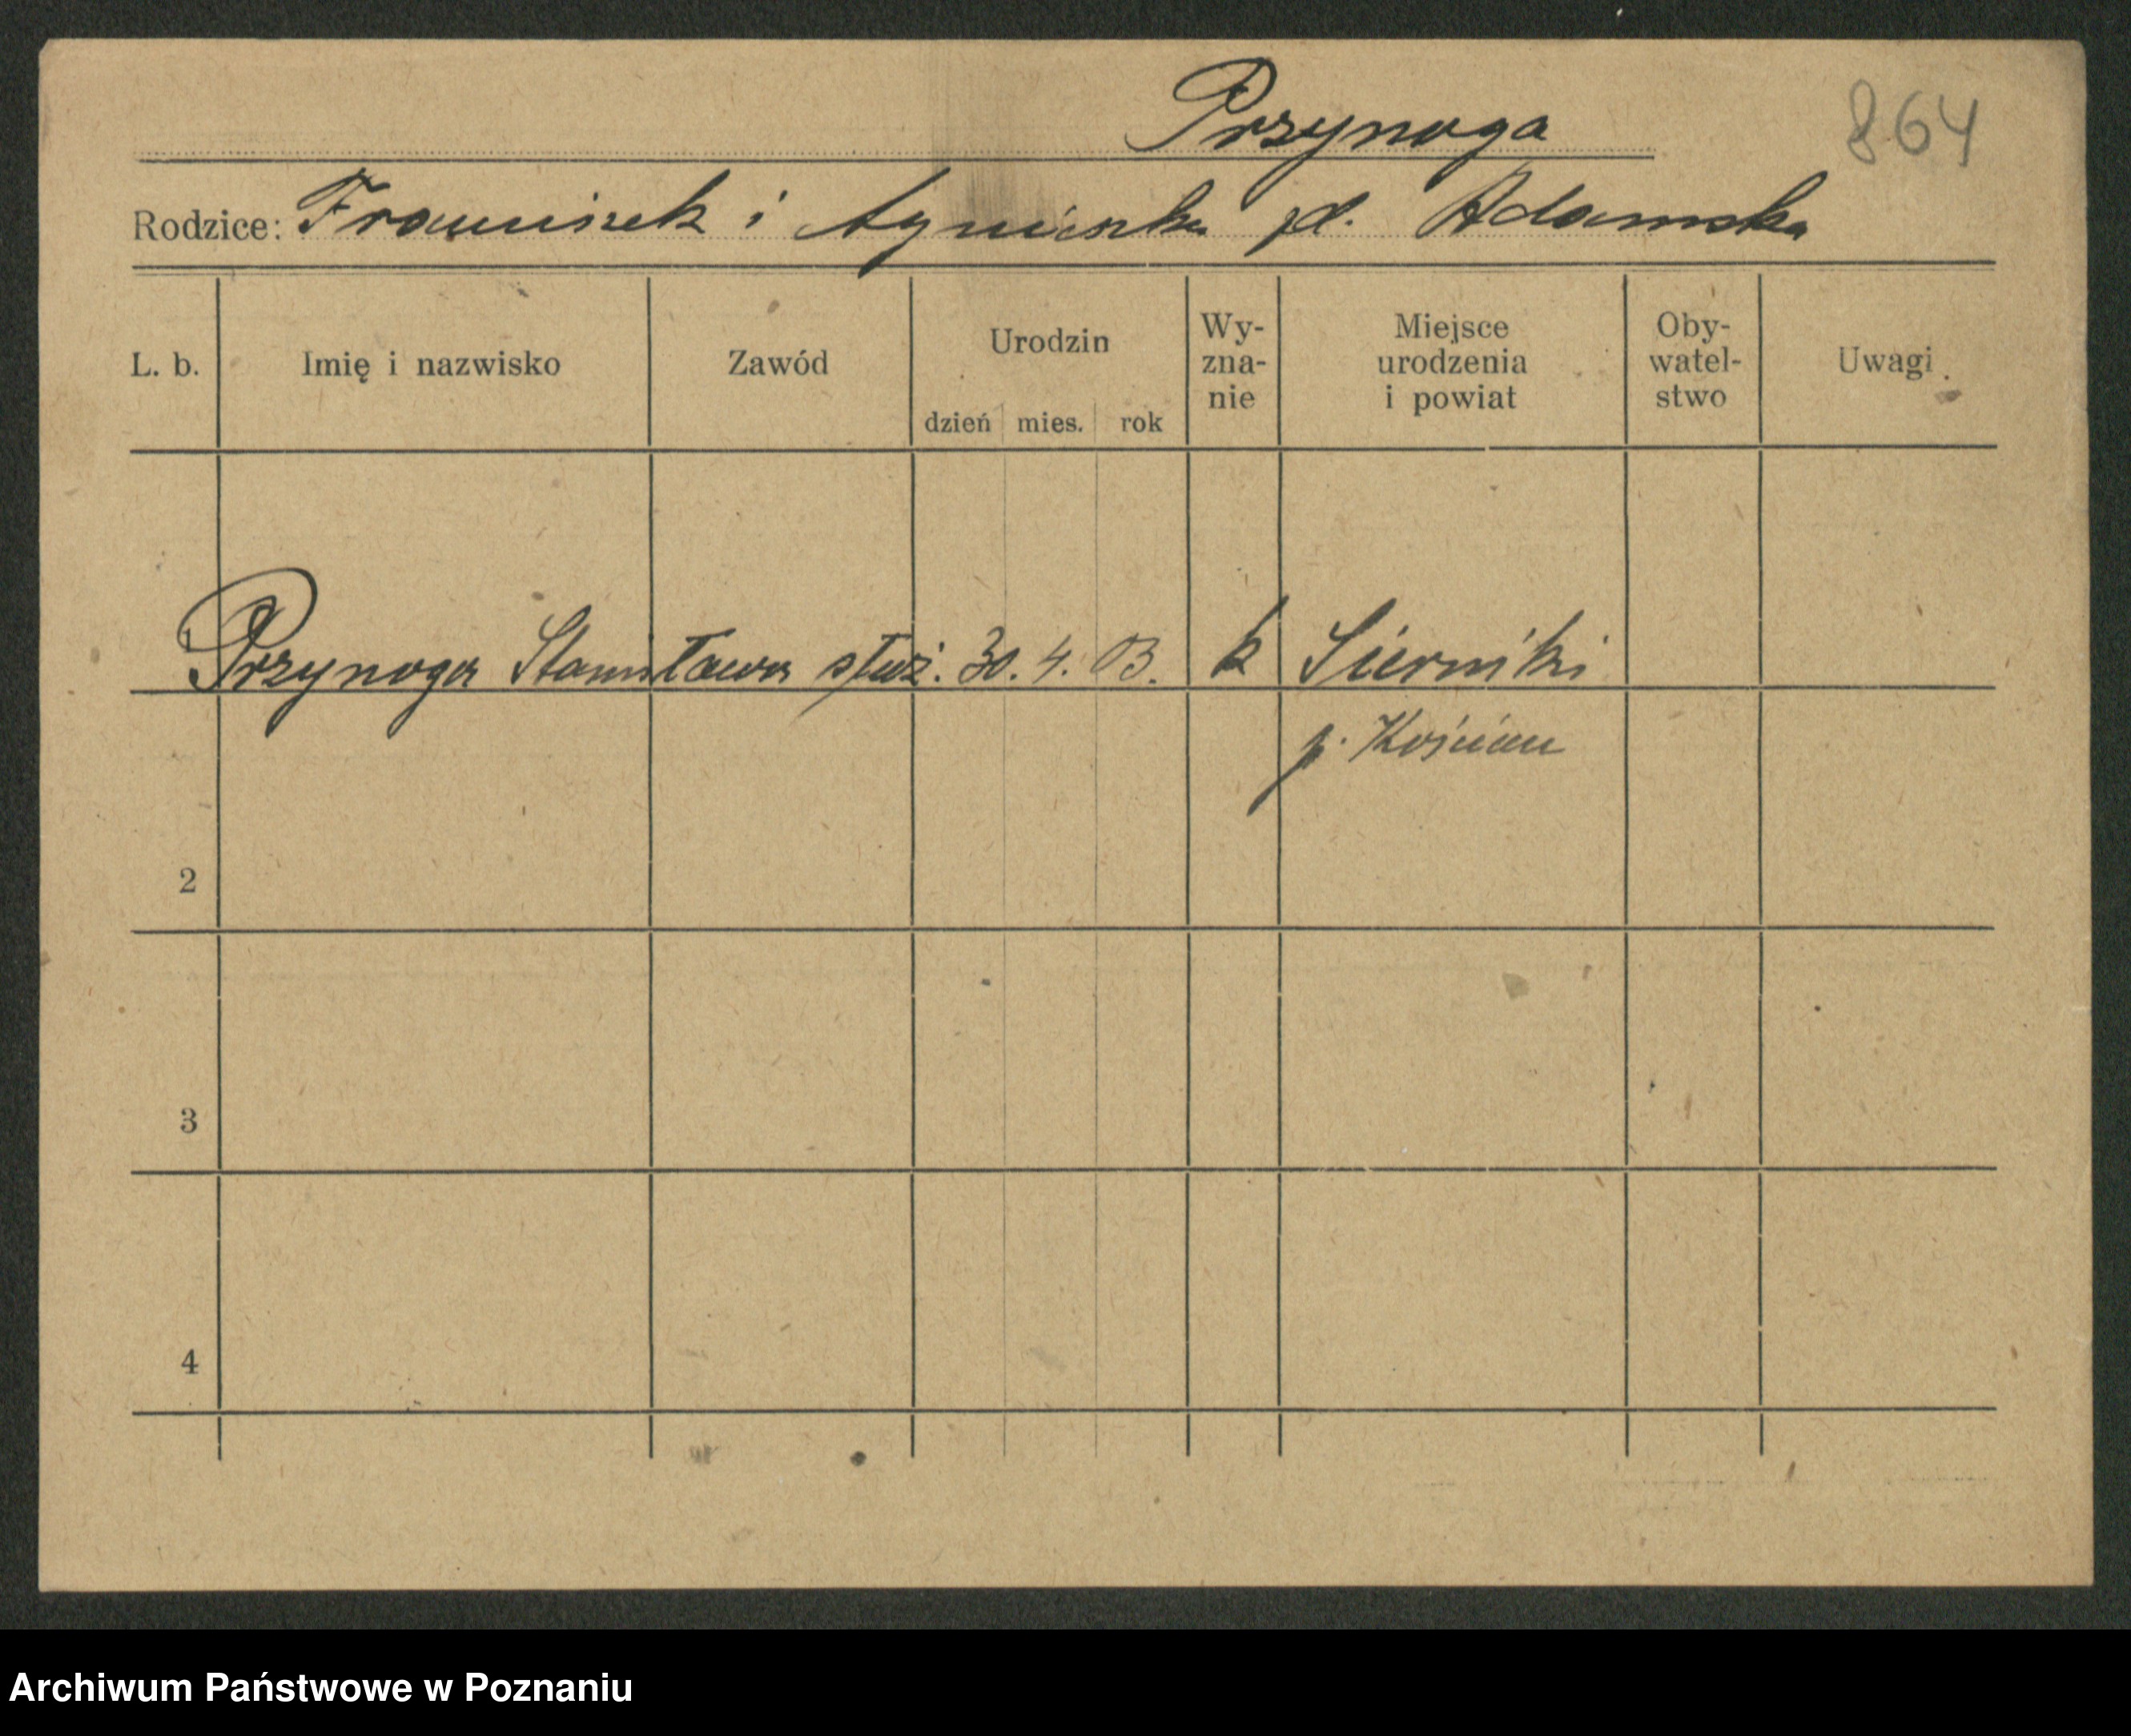 Przynoga
864
Rodzice: Franciszek i Agnieszka zd. Adamska
L. b. Imię i nazwisko Zawód Urodzin dzień mies. rok Wy-zna-nie Miejsce urodzenia i powiat Oby-watel-stwo Uwagi
1 Przynoga Stanisława służ. 30. 4. 03. k Sierniki
p. Kościan
2
3
4
Archiwum Państwowe w Poznaniu